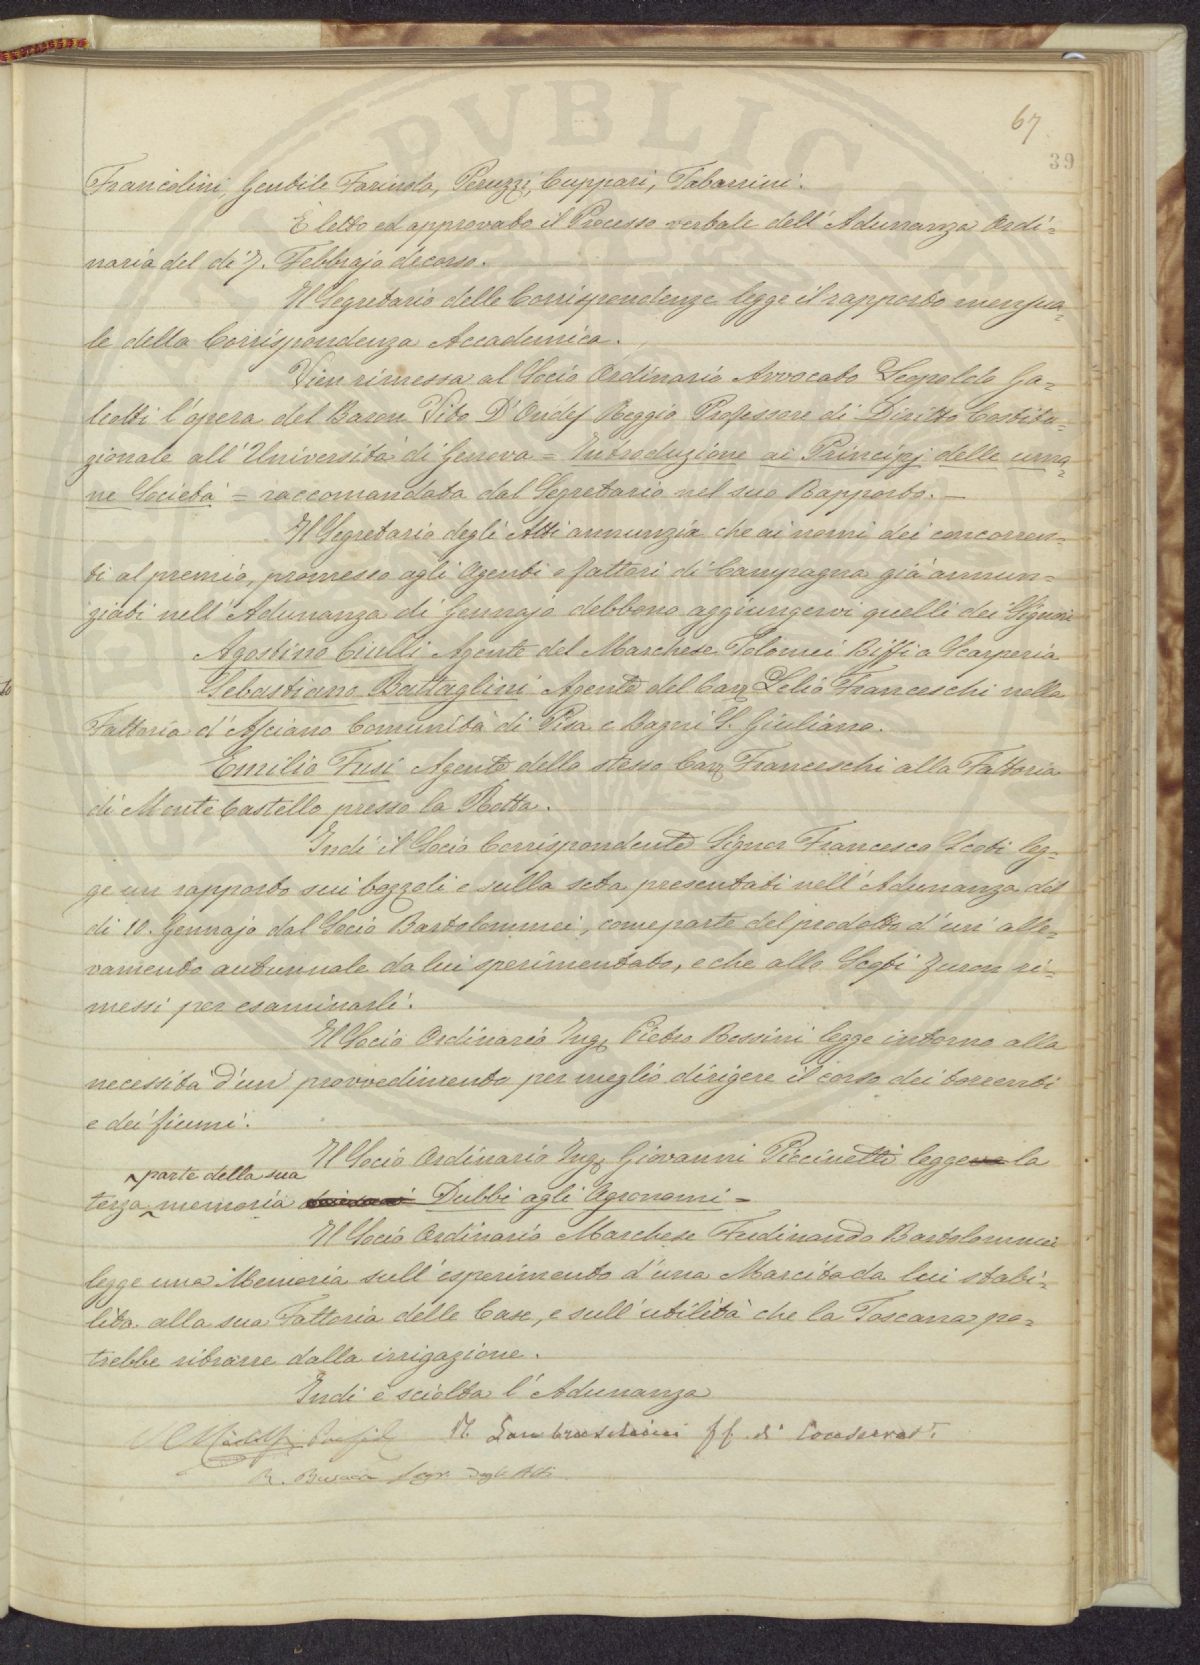 67
39
Francolini, Gentile Farinola, Peruzzi, Cuppari, Tabarrini.
È letto ed approvato il Processo verbale dell'Adunanza Ordi=
naria del dì 7. Febbrajo decorso.
Il Segretario delle Corrispondenze legge il rapporto mensua=
le della Corrispondenza Accademica.
Vien rimessa al Socio Ordinario Avvocato Leopoldo Ga=
leotti l'opera del Baron Vito D'Ondes Reggio Professore di Diritto Costitu=
zionale all'Università di Genova = Introduzione ai Principj delle uma=
ne Società = raccomandata dal Segretario nel suo Rapporto. —
Il Segretario degli Atti annunzia che ai nomi dei concorren=
ti al premio, promesso agli Agenti e fattori di Campagna già annun=
ziati nell'Adunanza di Gennajo debbono aggiungervi quelli dei Signori
Agostino Ciulli Agente del Marchese Tolomei Biffi a Scarperia
Sebastiano Battaglini Agente del Cav. Lelio Franceschi nella
Fattoria d'Asciano Comunità di Pisa e Bagni S. Giuliano.
Emilio Fusi Agente dello stesso Cav. Franceschi alla Fattoria
di Monte Castello presso la Rotta.
Indi il Socio Corrispondente Signor Francesco Scoti leg=
ge un rapporto sui bozzoli e sulla seta presentati nell'Adunanza del
dì 10. Gennajo dal Socio Bartolommei, come parte del prodotto d'un'alle=
vamento autunnale da lui sperimentato, e che allo Scoti furon ri=
messi per esaminarli.
Il Socio Ordinario Ing. Pietro Rossini legge intorno alla
necessita d'un provvedimento per meglio dirigere il corso dei torrenti
e dei fiumi.
Il Socio Ordinario Ing. Giovanni Piccinetti leggeva la
parte della sua
terza memoria Dubbi agli Agronomi =
Il Socio Ordinario Marchese Ferdinando Bartolommei
legge una Memoria sull'esperimento d'una Marcita da lui stabi=
lita alla sua Fattoria delle Case, e sull'utilità che la Toscana po=
trebbe ritrarre dalla irrigazione.
Indi è sciolta l'Adunanza
R Lambruschini ff. di
R. Busacca Segr. degli Atti
PVBLIC